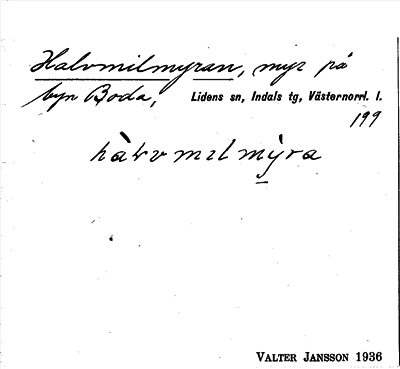 Halvmilmyran, myr på
byn Boda, Lidens sn, Indals tg, Västernorrl. l.
199
hàlvmɪlmỳra
VALTER JANSSON 1936